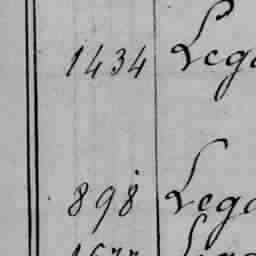 1434 Lega
898 Lega